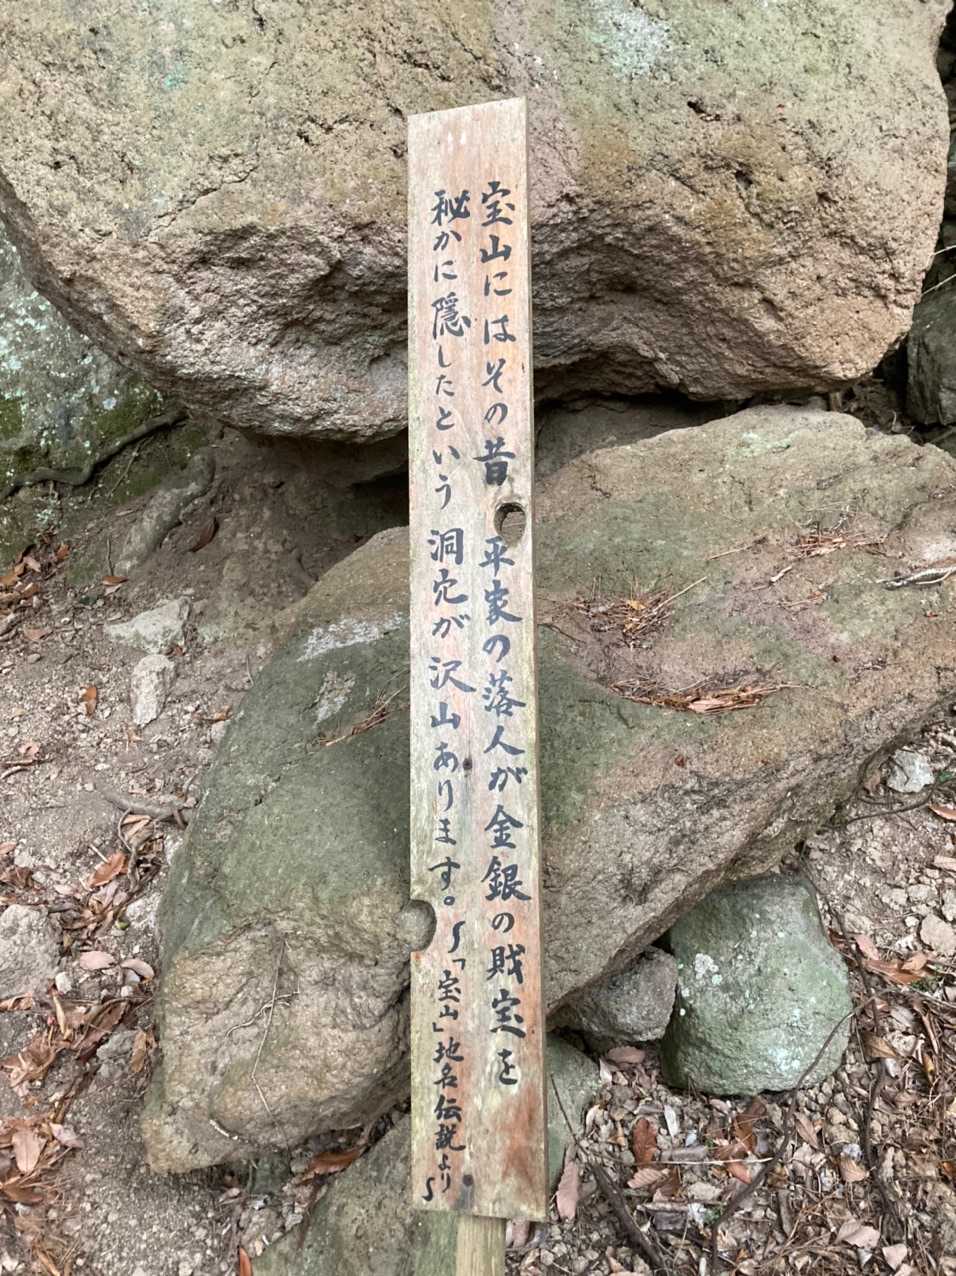 宝山にはその昔 平家の落人が金銀の財宝を
秘かに隠したという洞穴が沢山あります。〜「宝山」地名伝説より〜